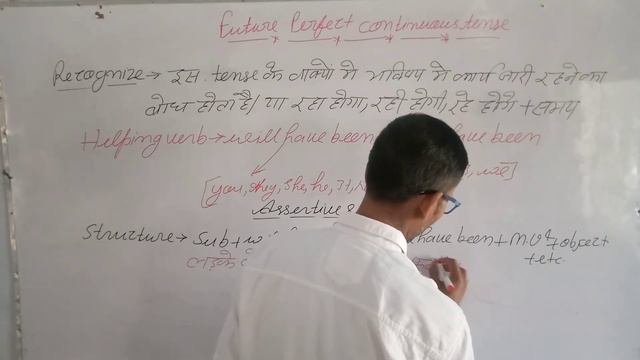 Future Perfect continuous tense
Recognize → इस tense के वाक्यों में भविष्य में कार्य जारी रहने का
बोध होता है। या रहा होगा, रही होगी, रहे होंगे + समय
Helping verb → will have been have been
[you, they, she, he, It, we]
Assertive
Structure → Sub + have been + M.V⁴ + object
लड़के + etc.